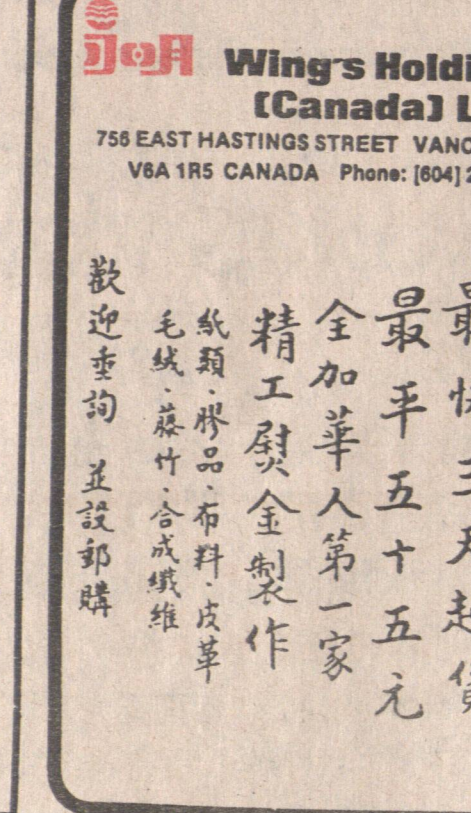 Wing's Holdi
(Canada) L
756 EAST HASTINGS STREET VANC
V6A 1R5 CANADA Phone: [604] 2
最快三天起貨
最平五十五元
全加華人第一家
精工熨金製作
紙類、膠品、布料、皮革
毛絨、藤竹、合成纖維
歡迎垂詢 並設郵購